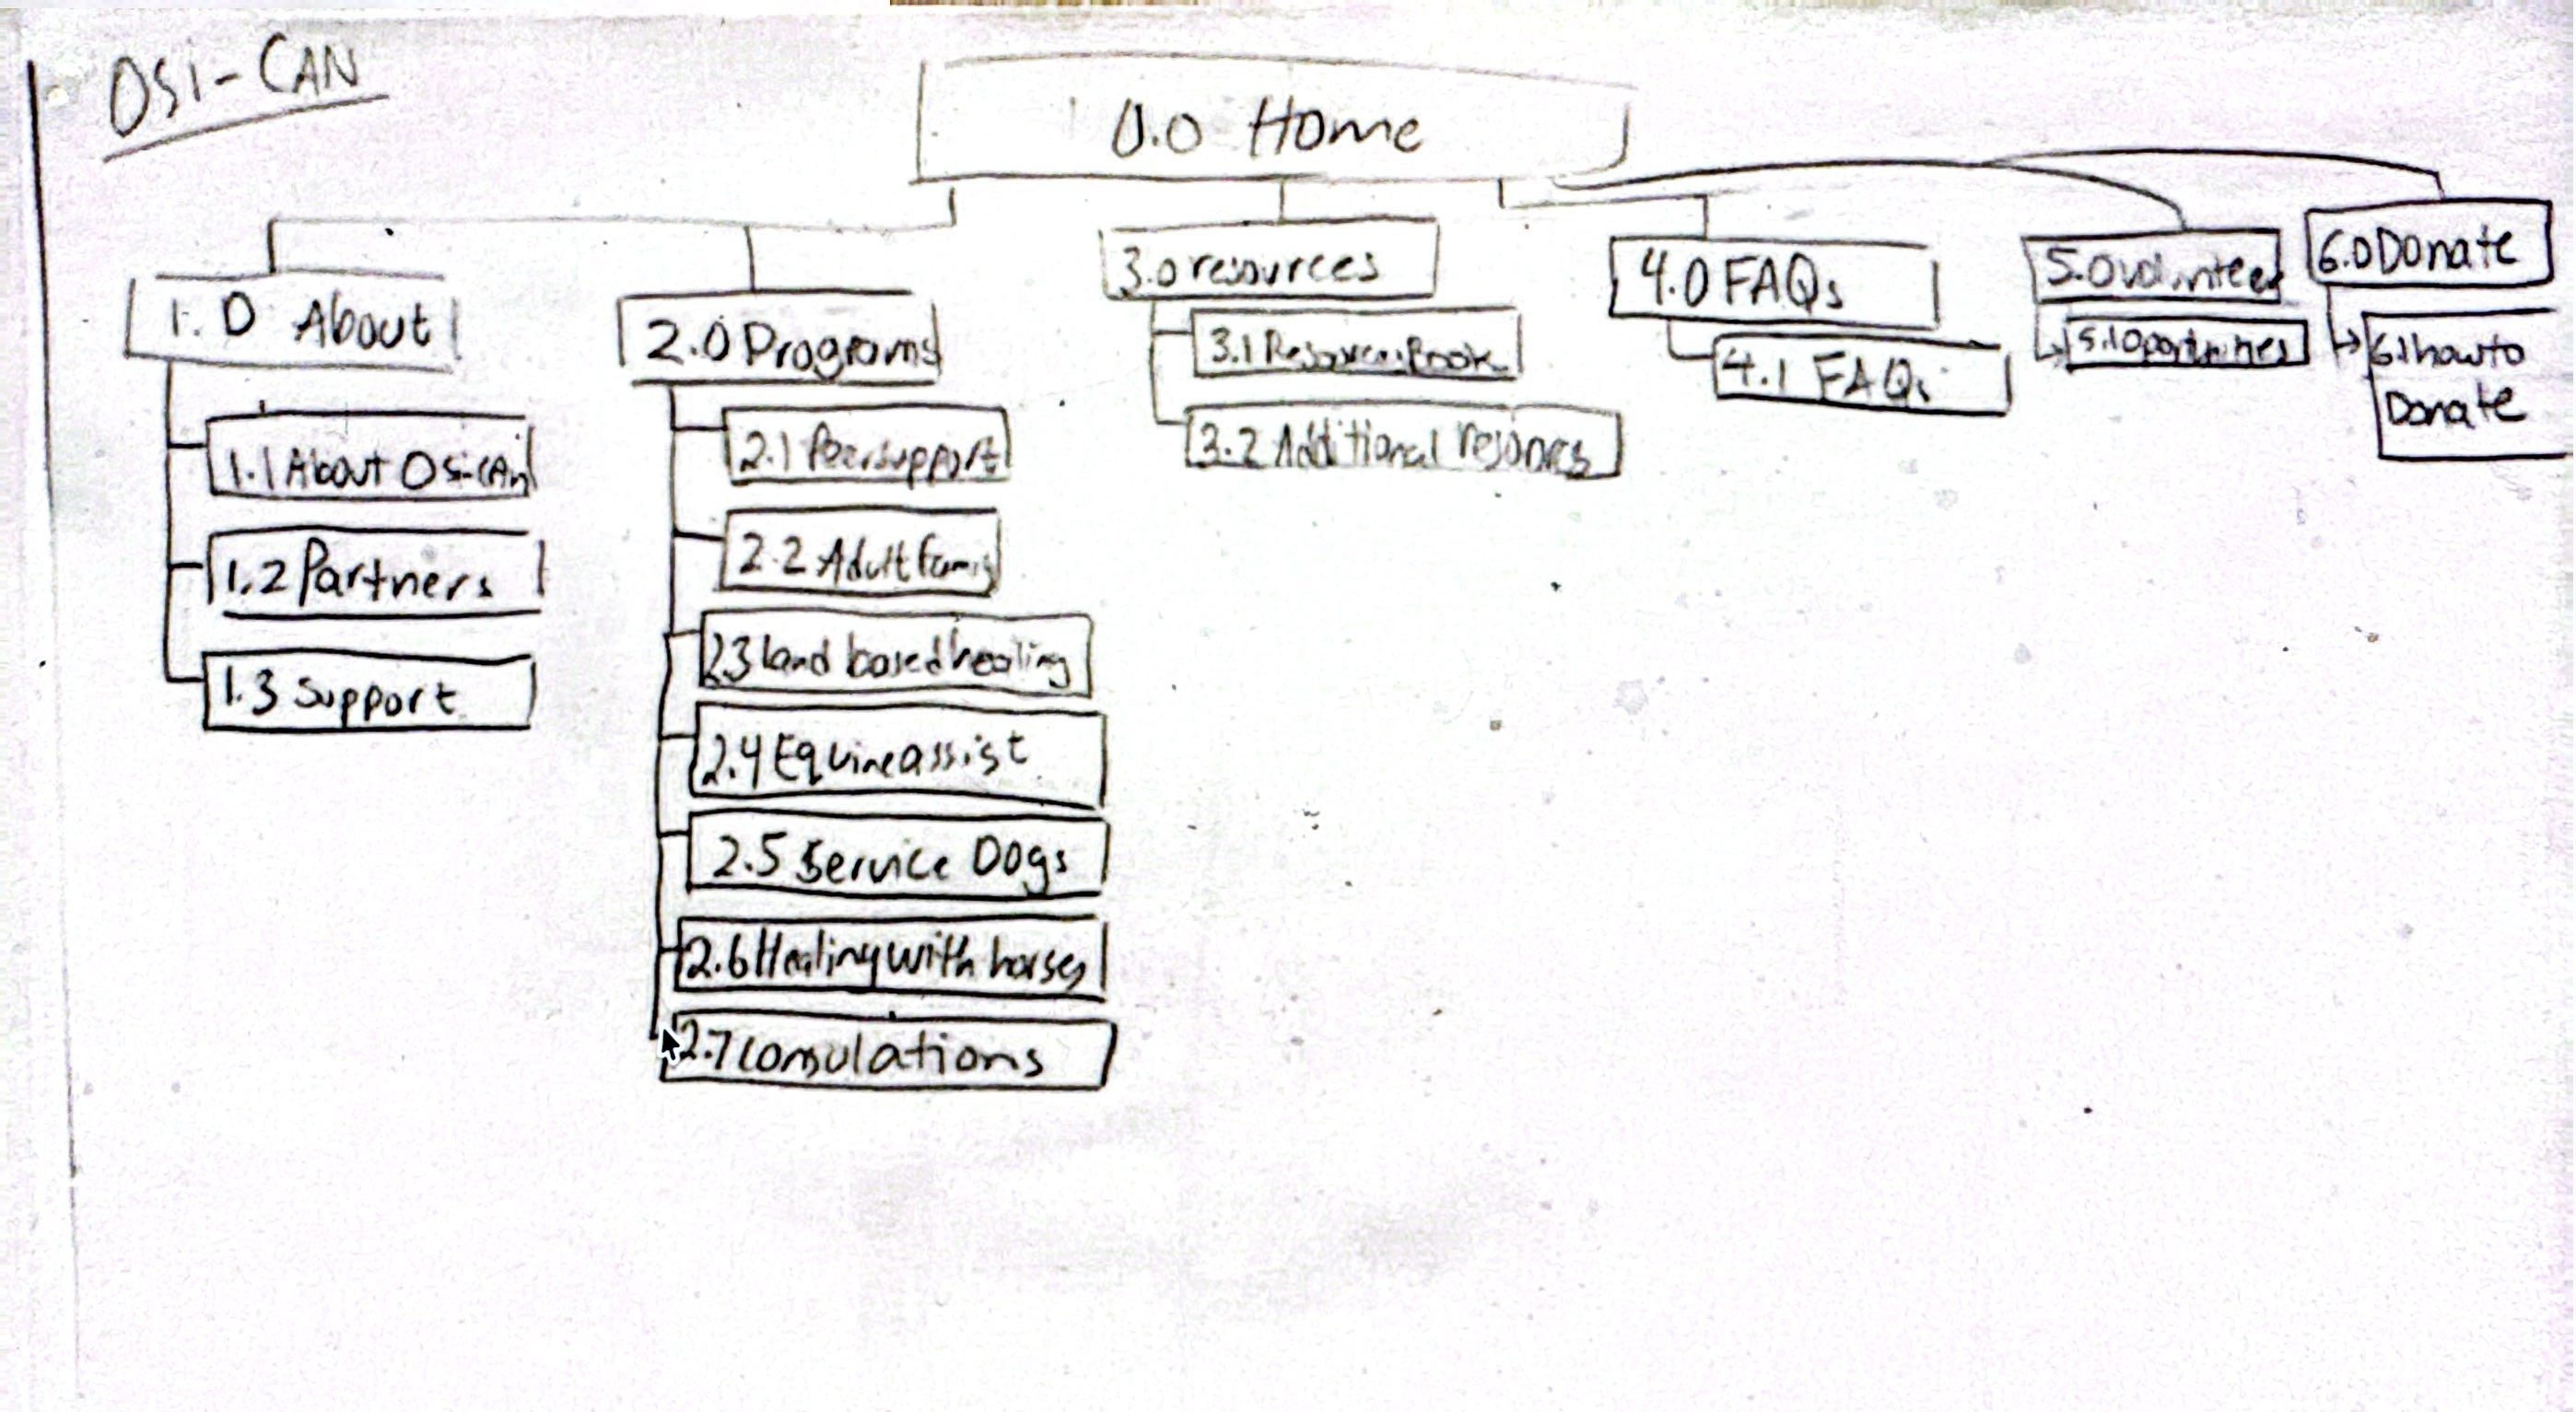 OSI-CAN
0.0 Home
1.0 About
1.1 About OSi-CAn
1.2 Partners
1.3 Support
2.0 Programs
2.1 Peer support
2.2 Adult family
2.3 land based healing
2.4 Equine assist
2.5 Service Dogs
2.6 Healing with horses
2.7 consulations
3.0 resources
3.1 Resource Book
3.2 Additional
4.0 FAQs
4.1 FAQs
5.0 volunteer
5.1
6.0 Donate
6.1 how to
Donate